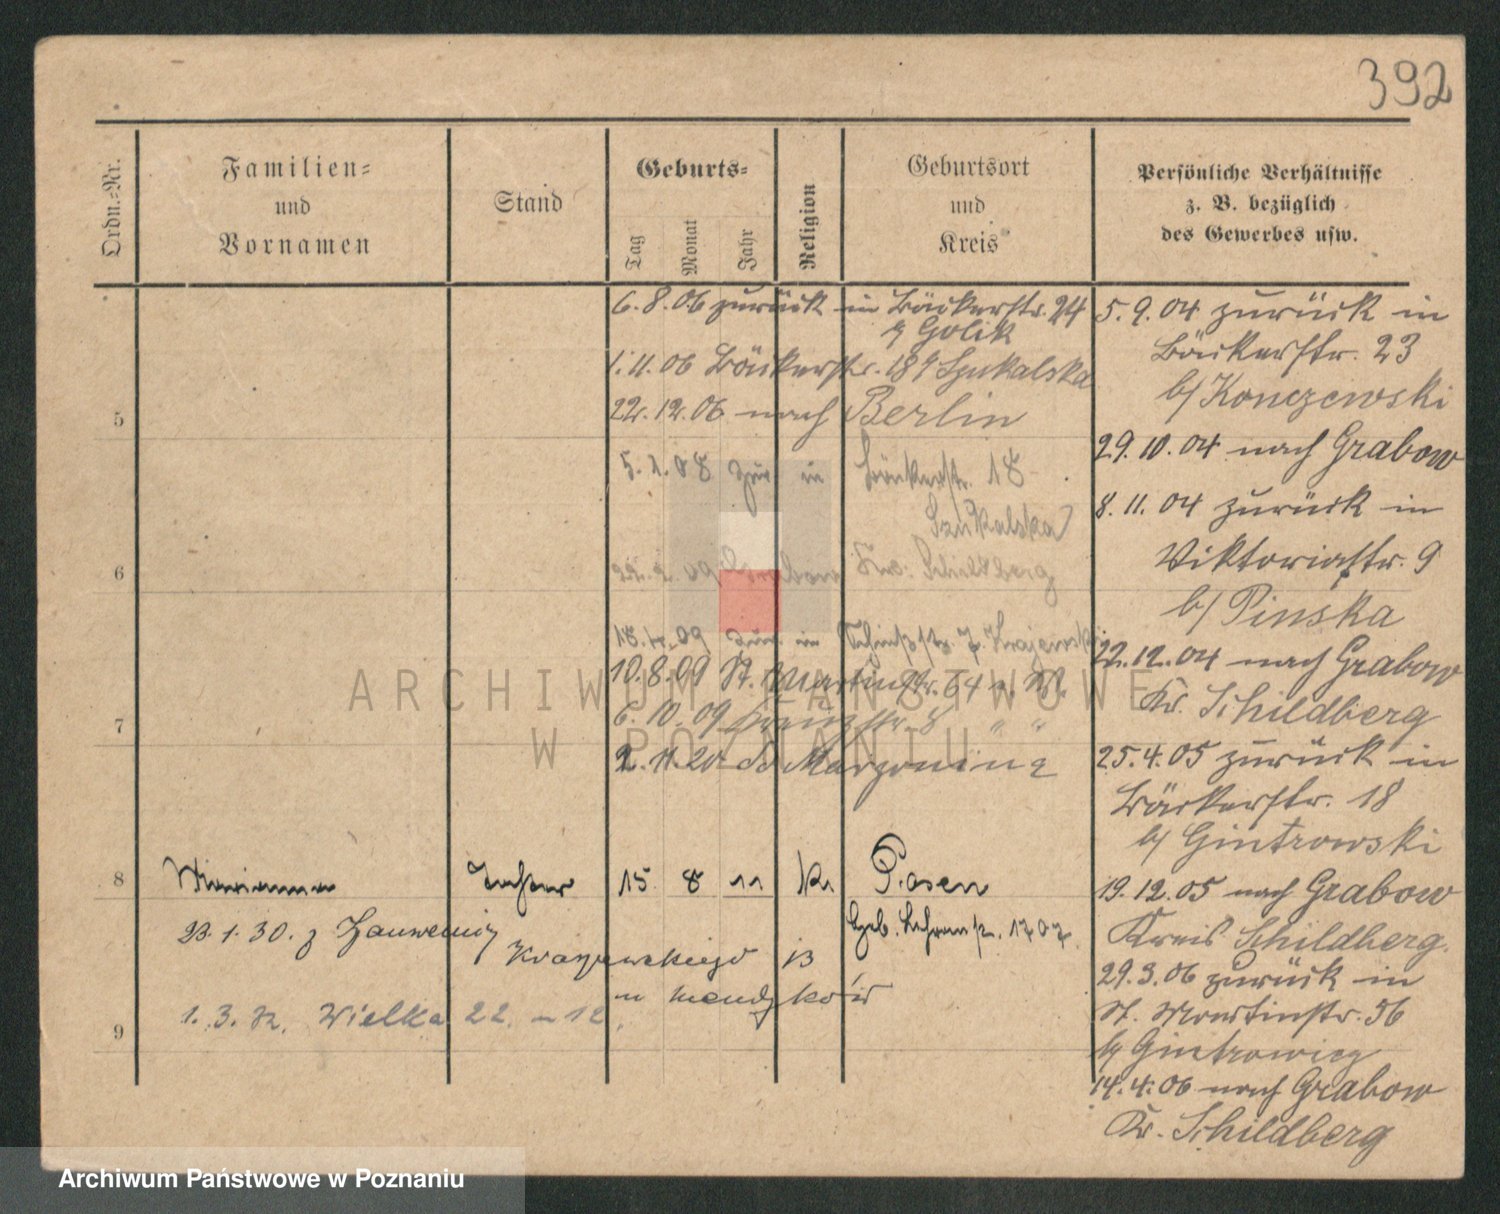 392
Ordn.-Nr.
Familien-
und
Vornamen
Stand
Geburts-
Tag
Monat
Jahr
Religion
Geburtsort
und
Kreis
Persönliche Verhältnisse
z. B. bezüglich
des Gewerbes usw.
6.8.06 zurück in Bäckerstr. 24
b/ Golik
1.11.06 Bäckerstr. 18 b/ Szukalska
22.12.06 nach Berlin
5
5.1.08 zur. in Bäckerstr. 18
Szukalska
6
Grabow Krs. Schildberg
18.4.09 zur. in 7. Krajewski
10.8.09 St. Martinstr. 64
6.10.09 Kreuzstr. 8 " "
7
2.11.20 Marzonina
8
Marianna Tochter 15 8 11 k. Posen
23.1.30. z
Geb. 1707
Kraszewskiego 13
1.3.32. Wielka 22 - 12.
9
5.9.04 zurück in
Bäckerstr. 23
b/ Konczewski
29.10.04 nach Grabow
8.11.04 zurück in
Viktoriastr. 9
b/ Pinska
22.12.04 nach Grabow
Kr. Schildberg
25.4.05 zurück in
Bäckerstr. 18
b/ Gintrowski
19.12.05 nach Grabow
Kreis Schildberg.
29.3.06 zurück in
St. Martinstr. 56
b/ Gintrowicz
14.4.06 nach Grabow
Kr. Schildberg
ARCHIWUM PAŃSTWOWE
W POZNANIU
Archiwum Państwowe w Poznaniu